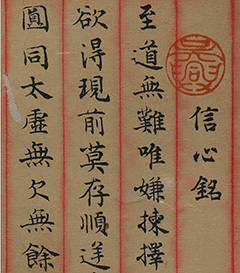 信心銘
至道無難唯嫌揀擇
欲得現前莫存順逆
圓同太虛無欠無餘